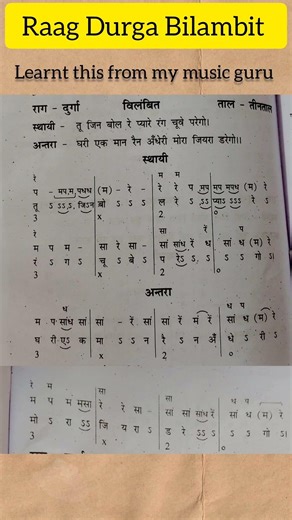 Raag Durga Bilambit
Learnt this from my music guru
राग - दुर्गा विलंबित ताल - तीनताल
स्थायी - तू जिन बोल रे प्यारे रंग चूवे परेगो।
अन्तरा - घरी एक मान रैन अँधेरी मोरा जियरा डरेगो।।
स्थायी
रे म म
प - मप,म,पधध (म) - रे - रे रे प मप मप मपध (म) रे
तू ऽ ऽऽ,ऽ,जिऽन बो ऽ ऽ ऽ ल रे ऽ ऽऽ प्याऽ ऽऽऽ रे ऽ
3 x 2 o
रे सा रें प
म प म - सा रे सा - सां सांध रें ध सां ध (म) रे
रं ऽ ग ऽ चू ऽ वे ऽ प रेऽ ऽ ऽ ऽ ऽ गो ऽ।
3 x 2 o
अन्तरा
ध ध प
म प सांध सां सां - रें सां सां रें मं रें सां ध (म) रे
घ री एऽ क मा ऽ ऽ न रै ऽ न अँ धे ऽ री ऽ
3 x 2 o
रे म सा ध प
म प म मसा रे रे सा - सां सां सांध रें सां ध (म) रे
मो ऽ रा ऽऽ जि य रा ऽ ड रे ऽऽ ऽ ऽ ऽ गो ऽ।
3 x 2 o